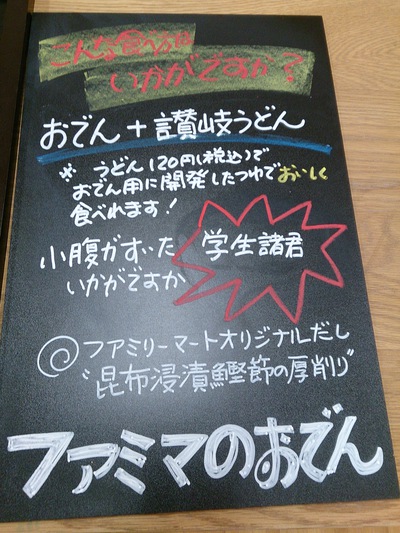 こんな食べ方は
いかがですか?
おでん+讃岐うどん
※ うどん120円(税込)で
おでん用に開発したつゆでおいしく
食べれます!
小腹がすいた 学生諸君
いかがですか
ファミリーマートオリジナルだし
"昆布浸漬鰹節の厚削り"
ファミマのおでん